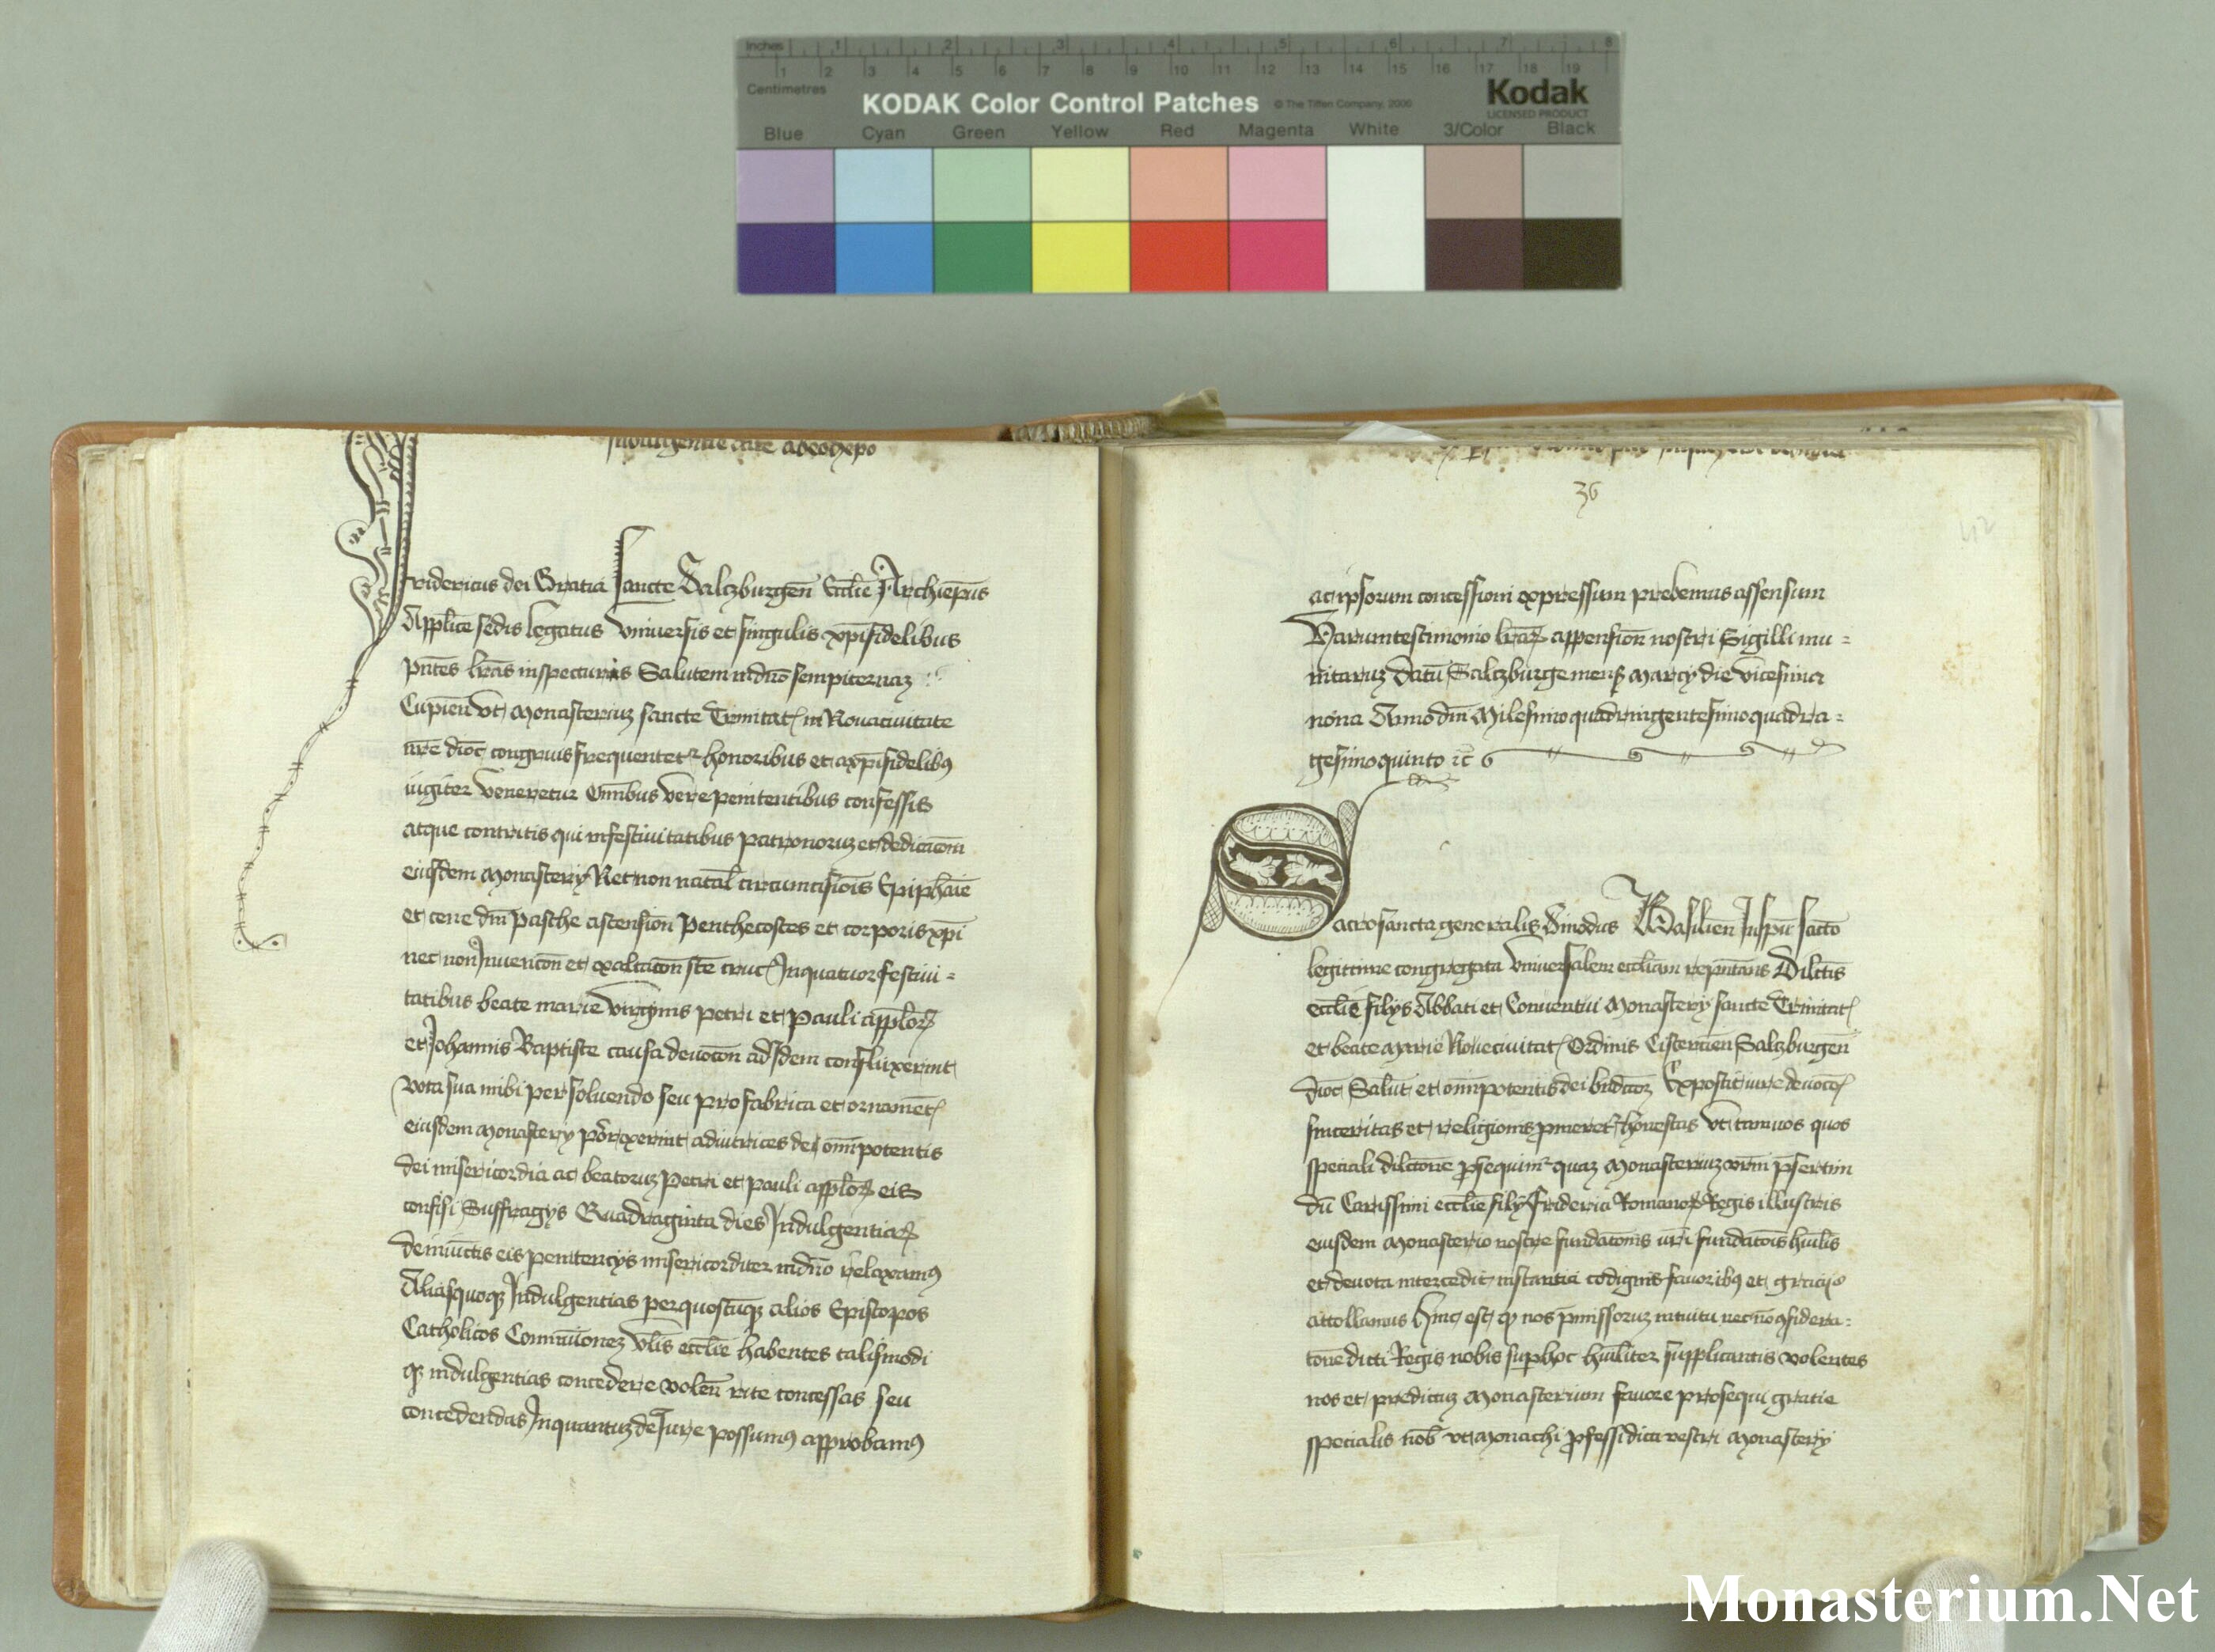 Inches 1 2 3 4 5 6 7 8
1 2 3 4 5 6 7 8 9 10 11 12 13 14 15 16 17 18 19
Centimetres
KODAK Color Control Patches © The Tiffen Company, 2000 Kodak
LICENSED PRODUCT
Blue Cyan Green Yellow Red Magenta White 3/Color Black
Fridericus dei Gratia Sancte Salczburgen̄ Ecclīe Archiep̄us
Applīce sedis legatus Vniuersis et singulis xp̄ifidelibus
pn̄tes lr̄as inspecturis Salutem in dn̄o sempiternaz
Cupien̄ vt Monasteriuz sancte Trinitat̄ in Nouaciuitate
nr̄e dioc̄ congruis frequentetr honoribus et a xp̄ifidelibꝯ
iugiter Veneretur Om̄ibus vere penitentibus confessis
atque contritis qui in festiuitatibus patronoruz et dedicac̄om
eiusdem Monastery Necnon natal̄ circumcisiōis Epiphāie
et cene dn̄i pasche ascension̄ Penthecostes et corporis xp̄i
nec non Inuencon̄ et exaltacon̄ ste cruc̄ In quatuor festiui=
tatibus beate marie virginis petri et Pauli applōꝝ
et Johannis Baptiste causa deuocon̄ ad Idem confluxerint
vota sua inibi persoluendo seu pro fabrica et ornamēt̄
eiusdem Monastery porrexerint adiutrices de om̄ipotentis
dei misericordia ac beatoruz Petri et pauli applōꝝ eis
confisi Suffragys Quadraginta dies Indulgenciaꝝ
de iniūctis eis penitencys misericorditer in dn̄o relaxamꝯ
Aliasquoqꝫ Indulgentias per quoscūqꝫ alios Episcopos
Catholicos Com̄unionez vl̄is ecclīe habentes talismodi
qꝫ indulgentias concedere volen̄ rite concessas seu
concedendas Inquantuz de Jure possumꝯ approbamꝯ
36
112
ac ipsorum concessioni expressum prebemus assensum
Harum testimonio lr̄aꝝ appension̄ nostri Sigilli mu=
nitaruz Datū Salczburge mens̄ Marcy die vicesima
nona Anno dn̄i Milesimo quadringentesimo quadra=
gesimo quinto ⁊c̄
Sacrosancta generalis Sinodus Basilien̄ In spū sācto
legittime congregata vniuersalem eccliam rep̄ntans Dilct̄is
ecclīe filys Abbati et Conuentui Monastery sancte Trinitat̄
et beate Marie Noueciuitat̄ Ordinis Cistercien̄ Salczburgen̄
dioc̄ Salut̄ et om̄ipotentis dei bn̄dc̄oz Exposcit vr̄e deuoco̅
sinceritas et religionis pmeret̄ honestas vt tam vos quos
speciali dilctōne ꝓsequimr quaz Monasteriuz vrm̄ p̄sertim
dū Carissimi ecclīe fily Friderici Romanoꝝ Regis illustris
eiusdem Monasterio nostre fundac̄onis vr̄i fundatōis hūilis
et deuota intercedit instantia codignis fauoribꝯ et gracijs
attollamus Hinc est qꝫ nos pmissoruz intuitu nec nō ꝯsidera=
tōne dicti Regis nobis sup hoc hūiliter supplicantis volentes
nos et predictuz Monasterium fauore prosequi gratie
specialis nob̄ vt Monachi ꝓfessi dicti vestri Monastery
Monasterium.Net